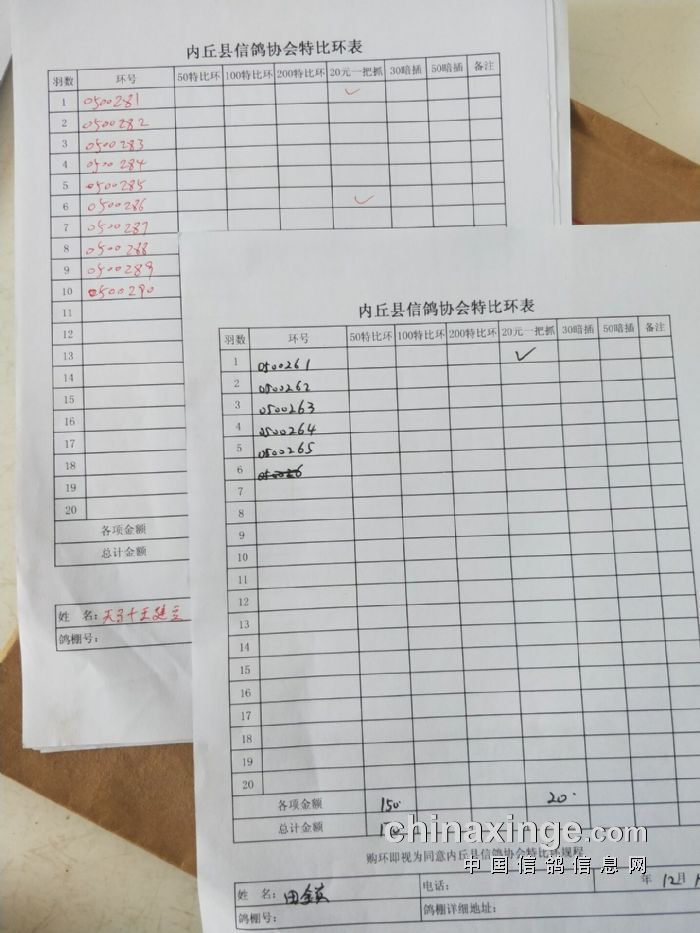 内丘县信鸽协会特比环表
羽数 环号 50特比环 100特比环 200特比环 20元一把抓 30暗插 50暗插 备注
1 0500281 ✓
2 0500282
3 0500283
4 0500284
5 0500285
6 0500286 ✓
7 0500287
8 0500288
9 0500289
10 0500290
11
12
13
14
15
16
17
18
19
20
各项金额
总计金额
姓 名:
鸽棚号:
内丘县信鸽协会特比环表
羽数 环号 50特比环 100特比环 200特比环 20元一把抓 30暗插 50暗插 备注
1 0500261 ✓
2 0500262
3 0500263
4 0500264
5 0500265
6
7
8
9
10
11
12
13
14
15
16
17
18
19
20
各项金额 150 20
总计金额
购环即视为同意内丘县信鸽协会特比环规程
姓 名: 电话: 年 12月
鸽棚号: 鸽棚详细地址:
chinaxinge.com
中国信鸽信息网